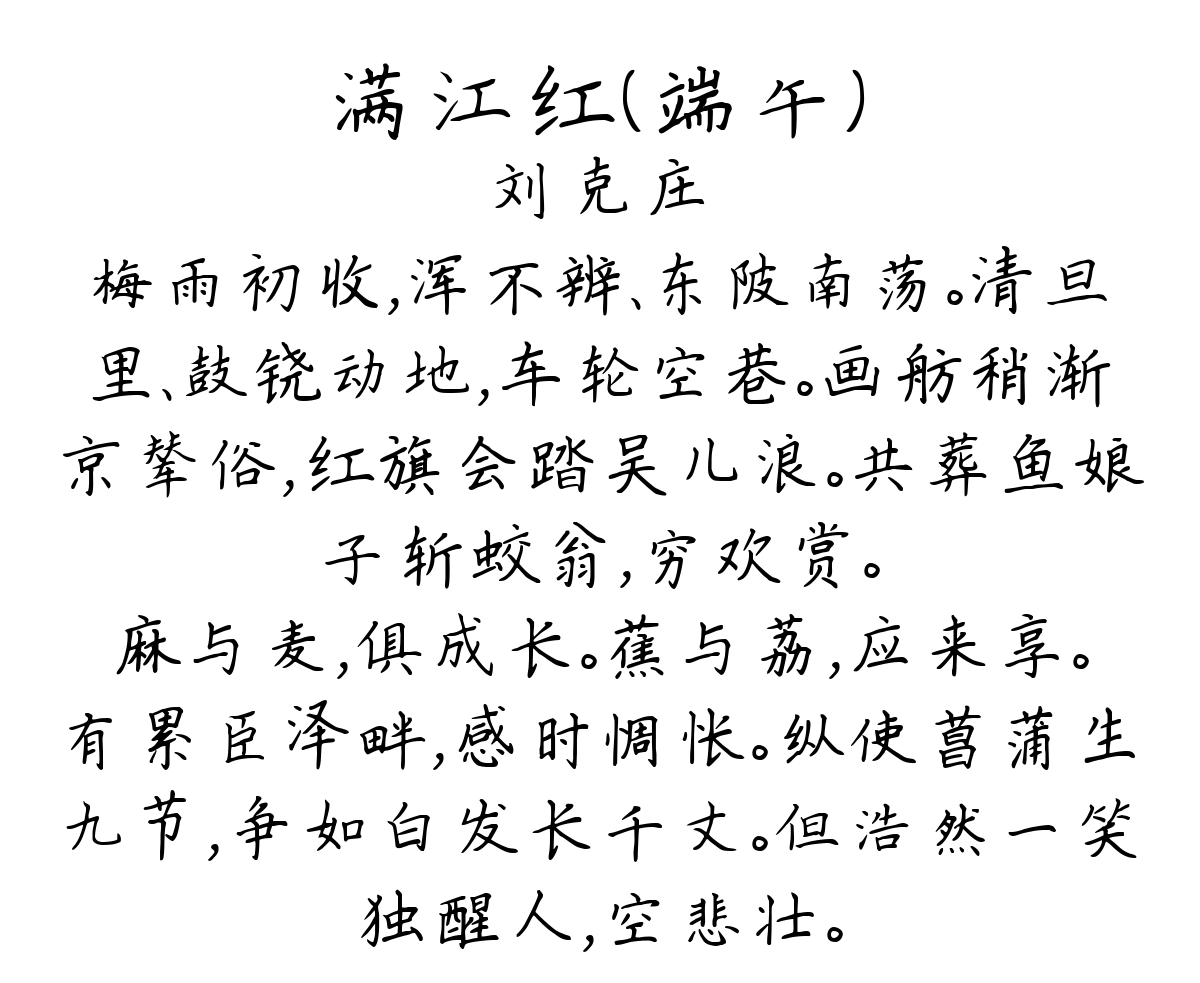 满江红(端午)
刘克庄
梅雨初收,浑不辨、东陂南荡。清旦
里、鼓铙动地,车轮空巷。画舫稍渐
京辇俗,红旗会踏吴儿浪。共葬鱼娘
子斩蛟翁,穷欢赏。
麻与麦,俱成长。蕉与荔,应来享。
有累臣泽畔,感时惆怅。纵使菖蒲生
九节,争如白发长千丈。但浩然一笑
独醒人,空悲壮。